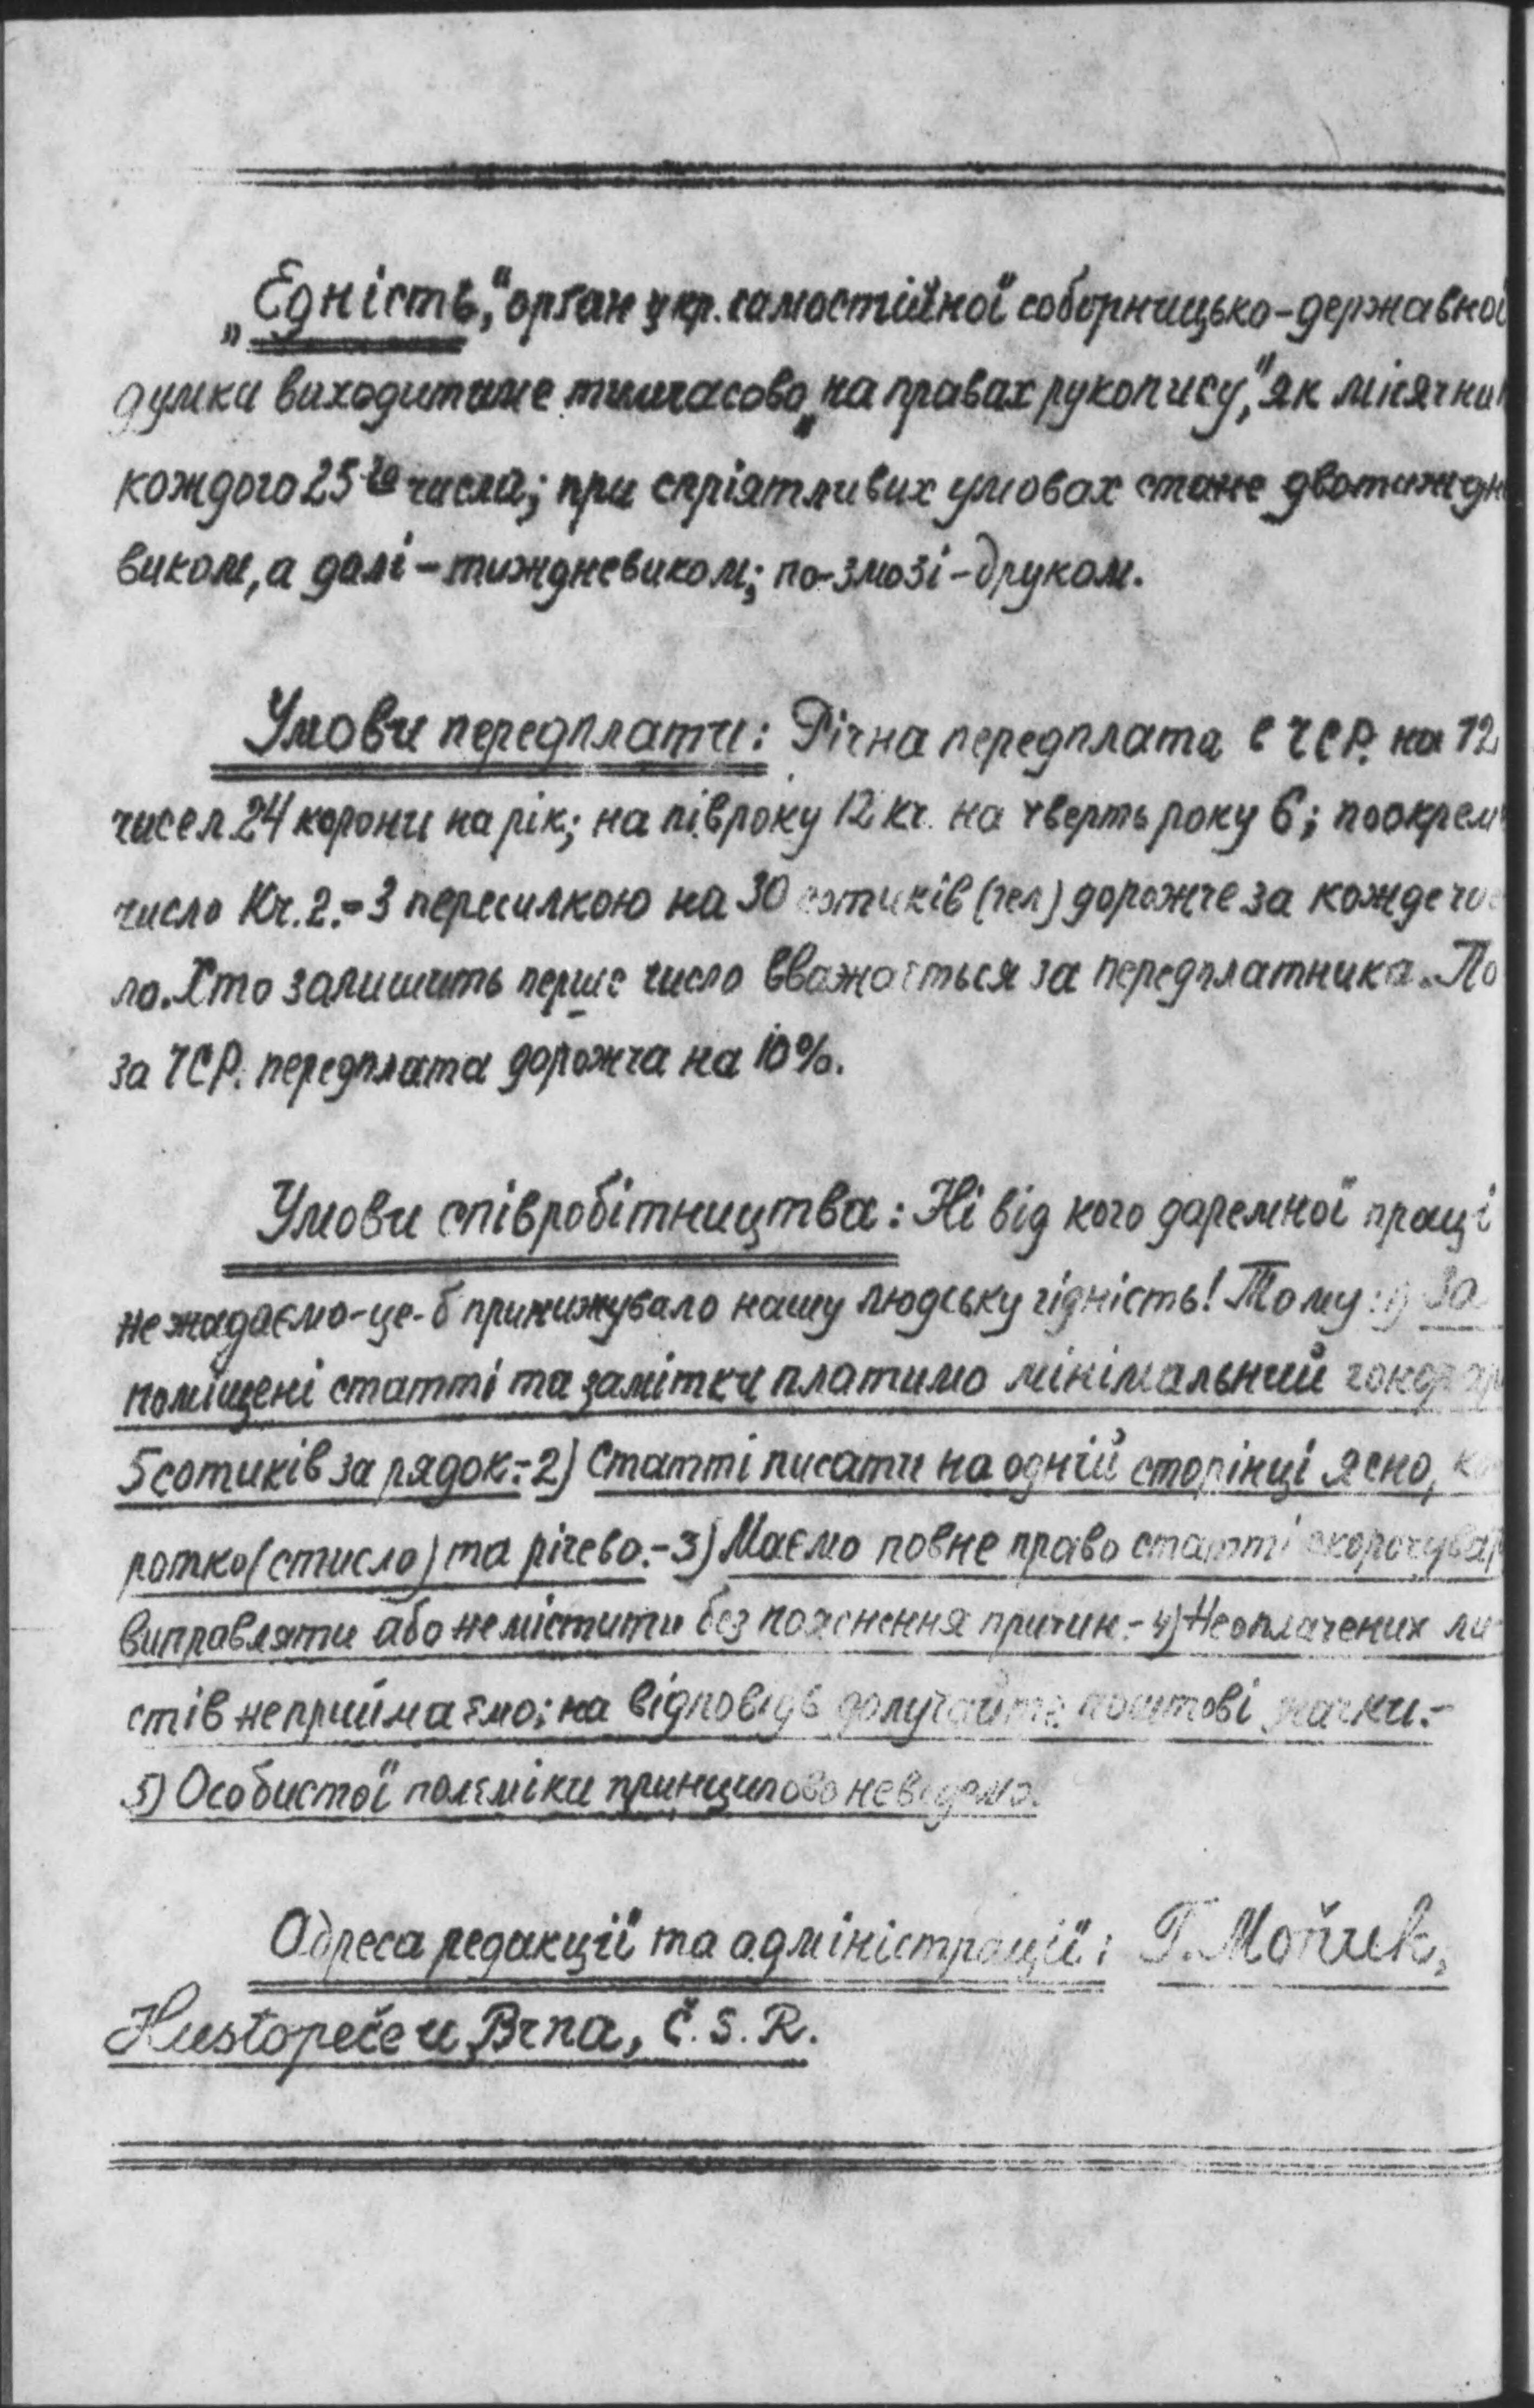 „Єдність“, орґан укр. самостійної соборницько-державної
думки виходитиме тимчасово „на правах рукопису“, як місячни
кождого 25го числа; при спріятливих умовах стане двотиждн
виком, а далі – тижднeвиком; по-змозі – друком.
Умови передплати: Річна передплата в ЧСР. на 12
чисел 24 корони на рік; на півроку 12 Кч. на чверть року 6; поокрем
число Кч. 2.= З пересилкою на 30 сотиків (гел) дорожче за кожде чис
ло. Хто залишить перше число вважається за передплатника. По
за ЧСР. передплата дорожча на 10%.
Умови співробітництва: Ні від кого даремної праці
не жадаємо - це-б принижувало нашу людську гідність! Тому: 1) За
поміщені статті та замітки платимо мінімальний гонорар
5 сотиків за рядок.- 2) Статті писати на одній сторінці ясно, ко
ротко (стисло) та річево.- 3) Маємо повне право статті скорочувати
виправляти або не містити без пояснення причин.- 4) Неоплачених ли
стів не приймаємо; на відповідь долучайте поштові значки.-
5) Особистої полєміки принципово не ведемо.
Адреса редакції та адміністрації: Г. Моňик,
Hustopeče u Brna, Č. S. R.